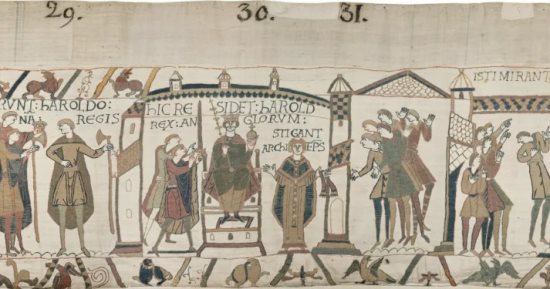 29. 30. 31.
RUNT: hAROLDO:
NA: REGIS
hIC RE SIDET: hAROLD
REX: AN GLORUM:
STIGANT
ARChI EPS
ISTI MIRANT